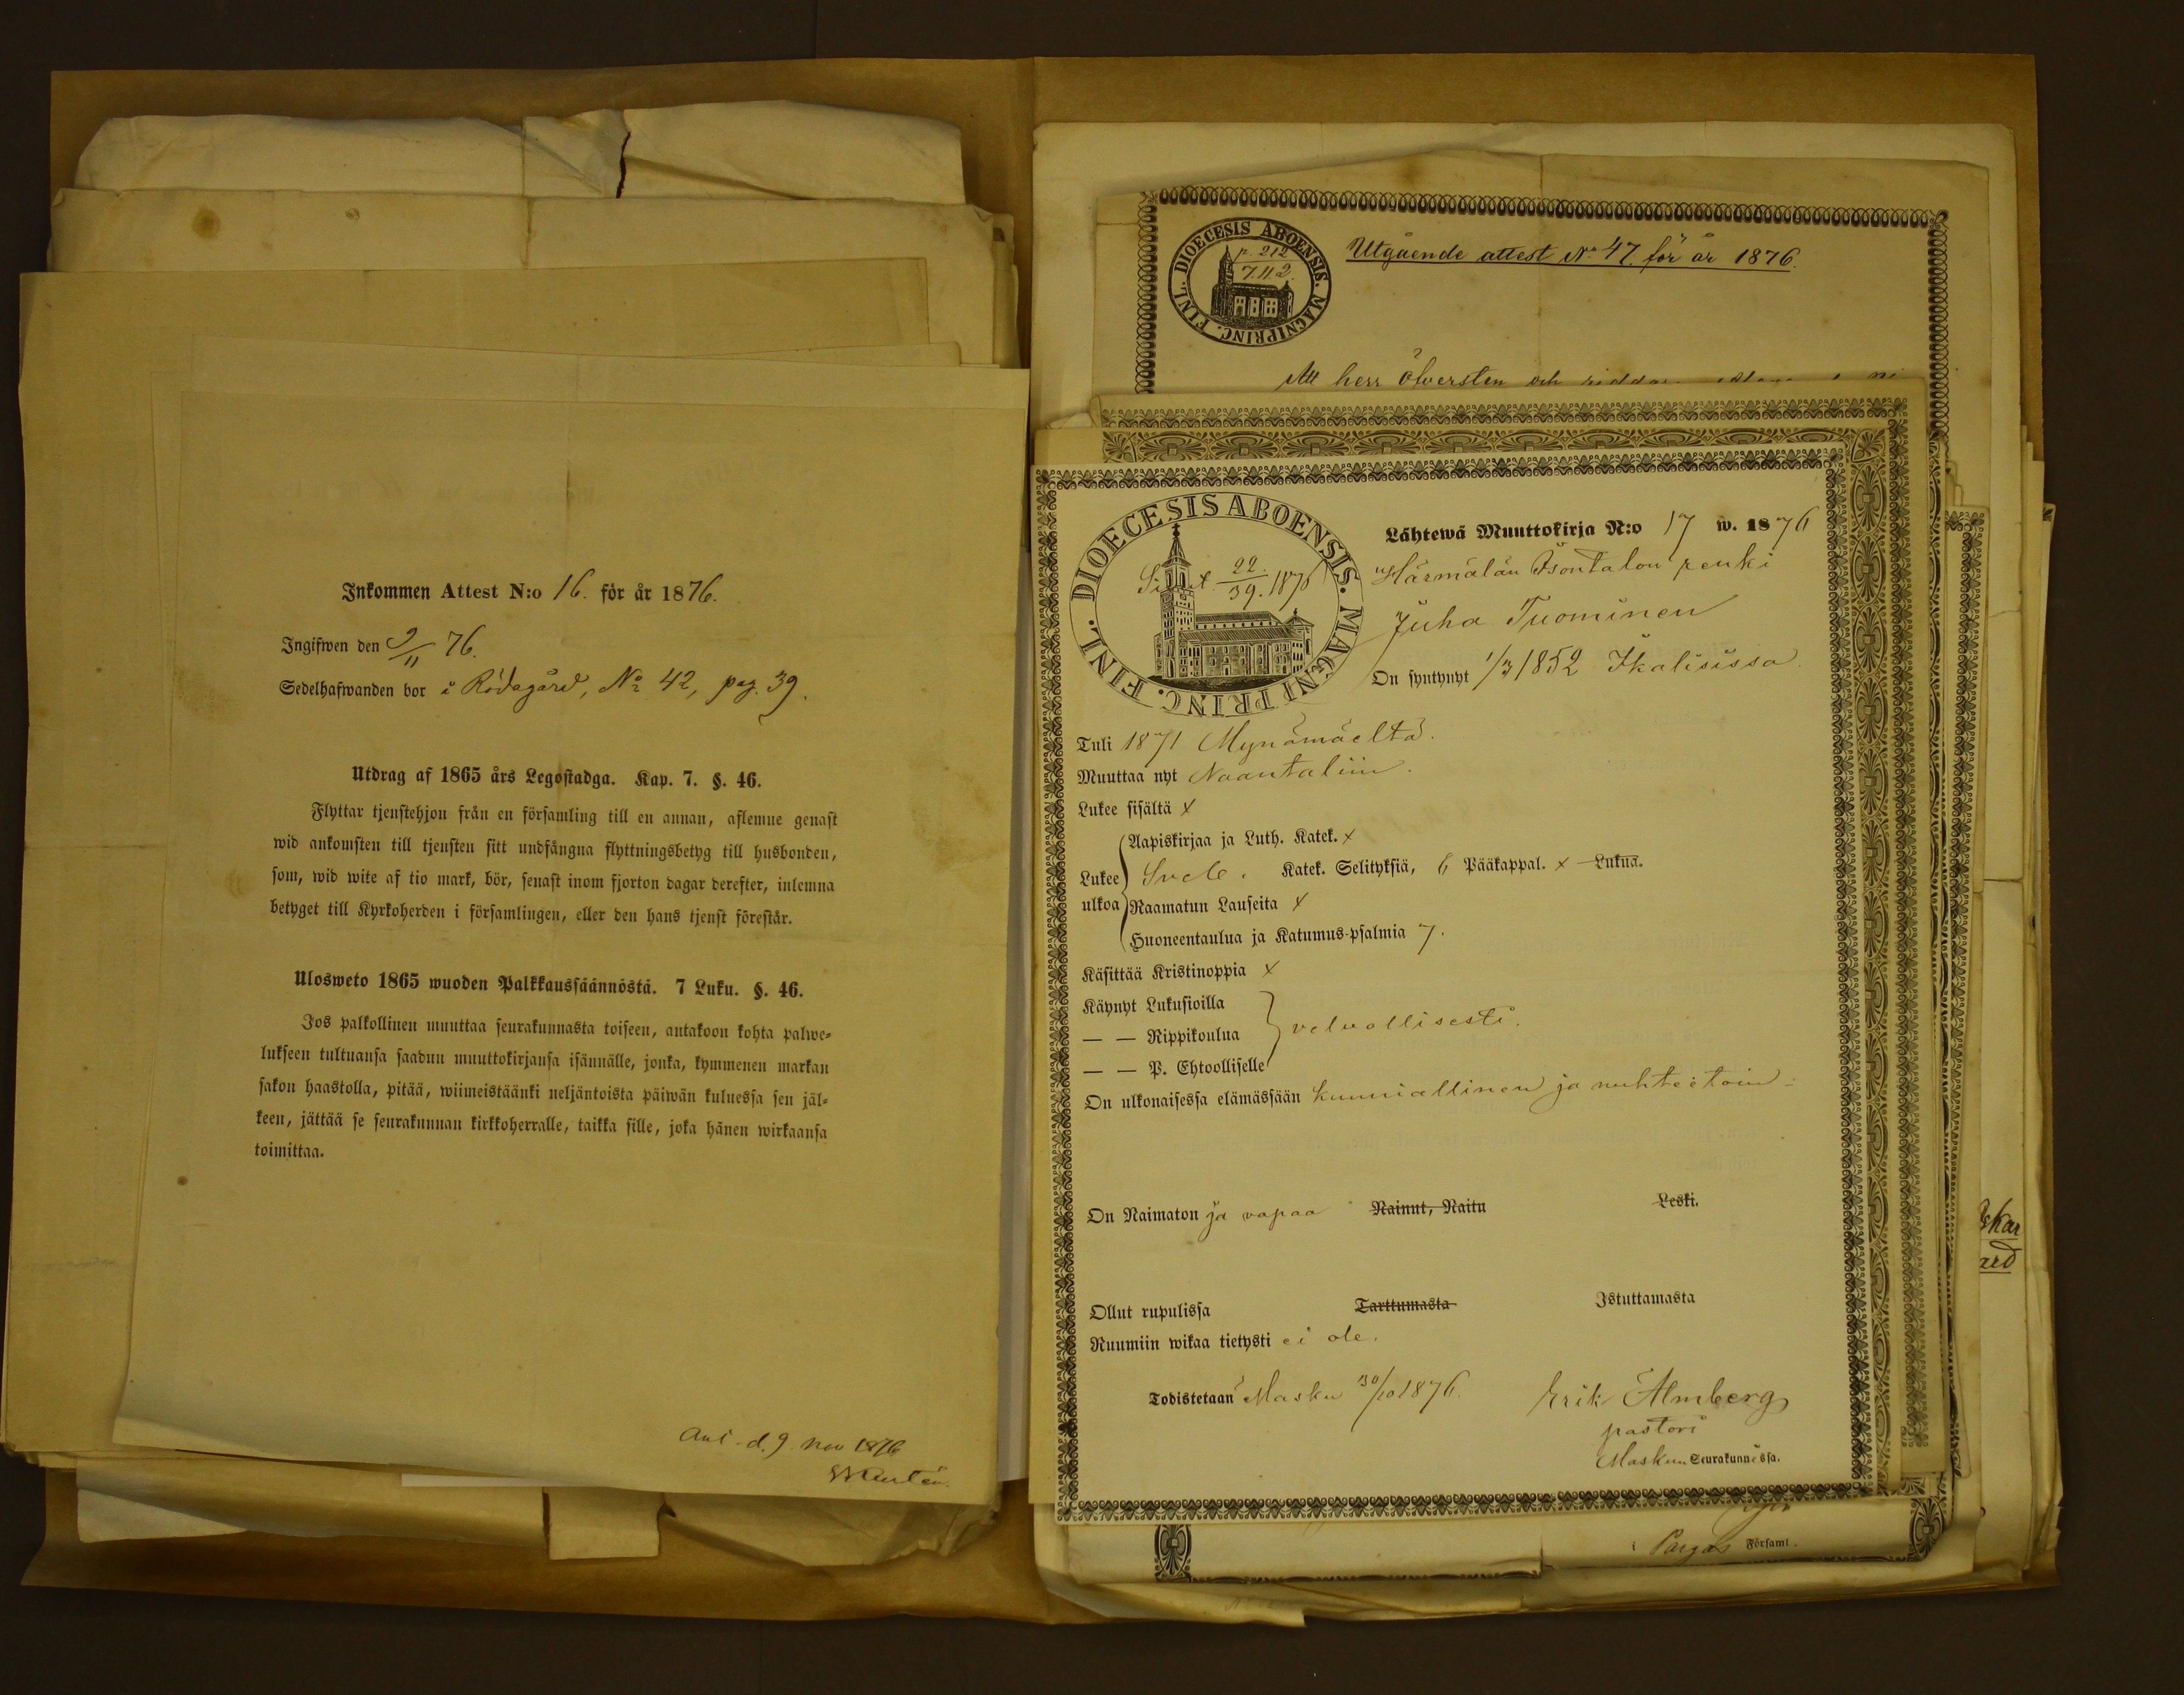 Inkommen Attest N:o 16. för år 1876.
Ingifwen den 9/11 76.
Sedelhafwanden bor i Rödagård, No 42, pag. 39.
Utdrag af 1865 års Legostadga. Kap. 7. §. 46.
Flyttar tjenstehjon från en församling till en annan, aflemne genast
wid ankomsten till tjensten sitt undfångna flyttningsbetyg till husbonden,
som, wid wite af tio mark, bör, senast inom fjorton dagar derefter, inlemna
betyget till Kyrkoherden i församlingen, eller den hans tjenst förestår.
Ulosweto 1865 wuoden Palkkaussäännöstä. 7 Luku. §. 46.
Jos palkollinen muuttaa seurakunnasta toiseen, antakoon kohta palwe-
lukseen tultuansa saadun muuttokirjansa isännälle, jonka, kymmenen markan
sakon haastolla, pitää, wiimeistäänki neljäntoista päiwän kuluessa sen jäl-
keen, jättää se seurakunnan kirkkoherralle, taikka sille, joka hänen wirkaansa
toimittaa.
d. 9 nov 1876
DIOECESIS ABOENSIS. MAGNIPRINC. FINL.
p. 212
7.11.2.
Utgående attest No 47. för år 1876.
Att herr Öfversten och
DIOECESIS ABOENSIS. MAGNI PRINC. FINL.
22.
39. 1876
Lähtewä Muuttokirja N:o 17 w. 1876
Härmälän Isontalon renki
Juha Tuominen
On syntynyt 1/3 1852 Ikalisissa
Tuli 1871 Mynämäeltä.
Muuttaa nyt Naantaliin.
Lukee sisältä x
Lukee ulkoa
Aapiskirjaa ja Luth. Katek. x
Svebe. Katek. Selityksiä, 6 Pääkappal. x Lukua.
Raamatun Lauseita x
Huoneentaulua ja Katumus-psalmia 7.
Käsittää Kristinoppia x
Käynyt Lukusioilla
— — Rippikoulua velvollisesti.
— — P. Ehtoolliselle
On ulkonaisessa elämässään kunniallinen ja nuhteetoin.
On Naimaton ja vapaa Nainut, Naitu Leski.
Ollut rupulissa Tarttumasta Istuttamasta
Ruumiin wikaa tietysti ei ole.
Todistetaan Masku 30/10 1876.
Erik Almberg
pastori
Maskun Seurakunnassa.
i Pargas Församl.